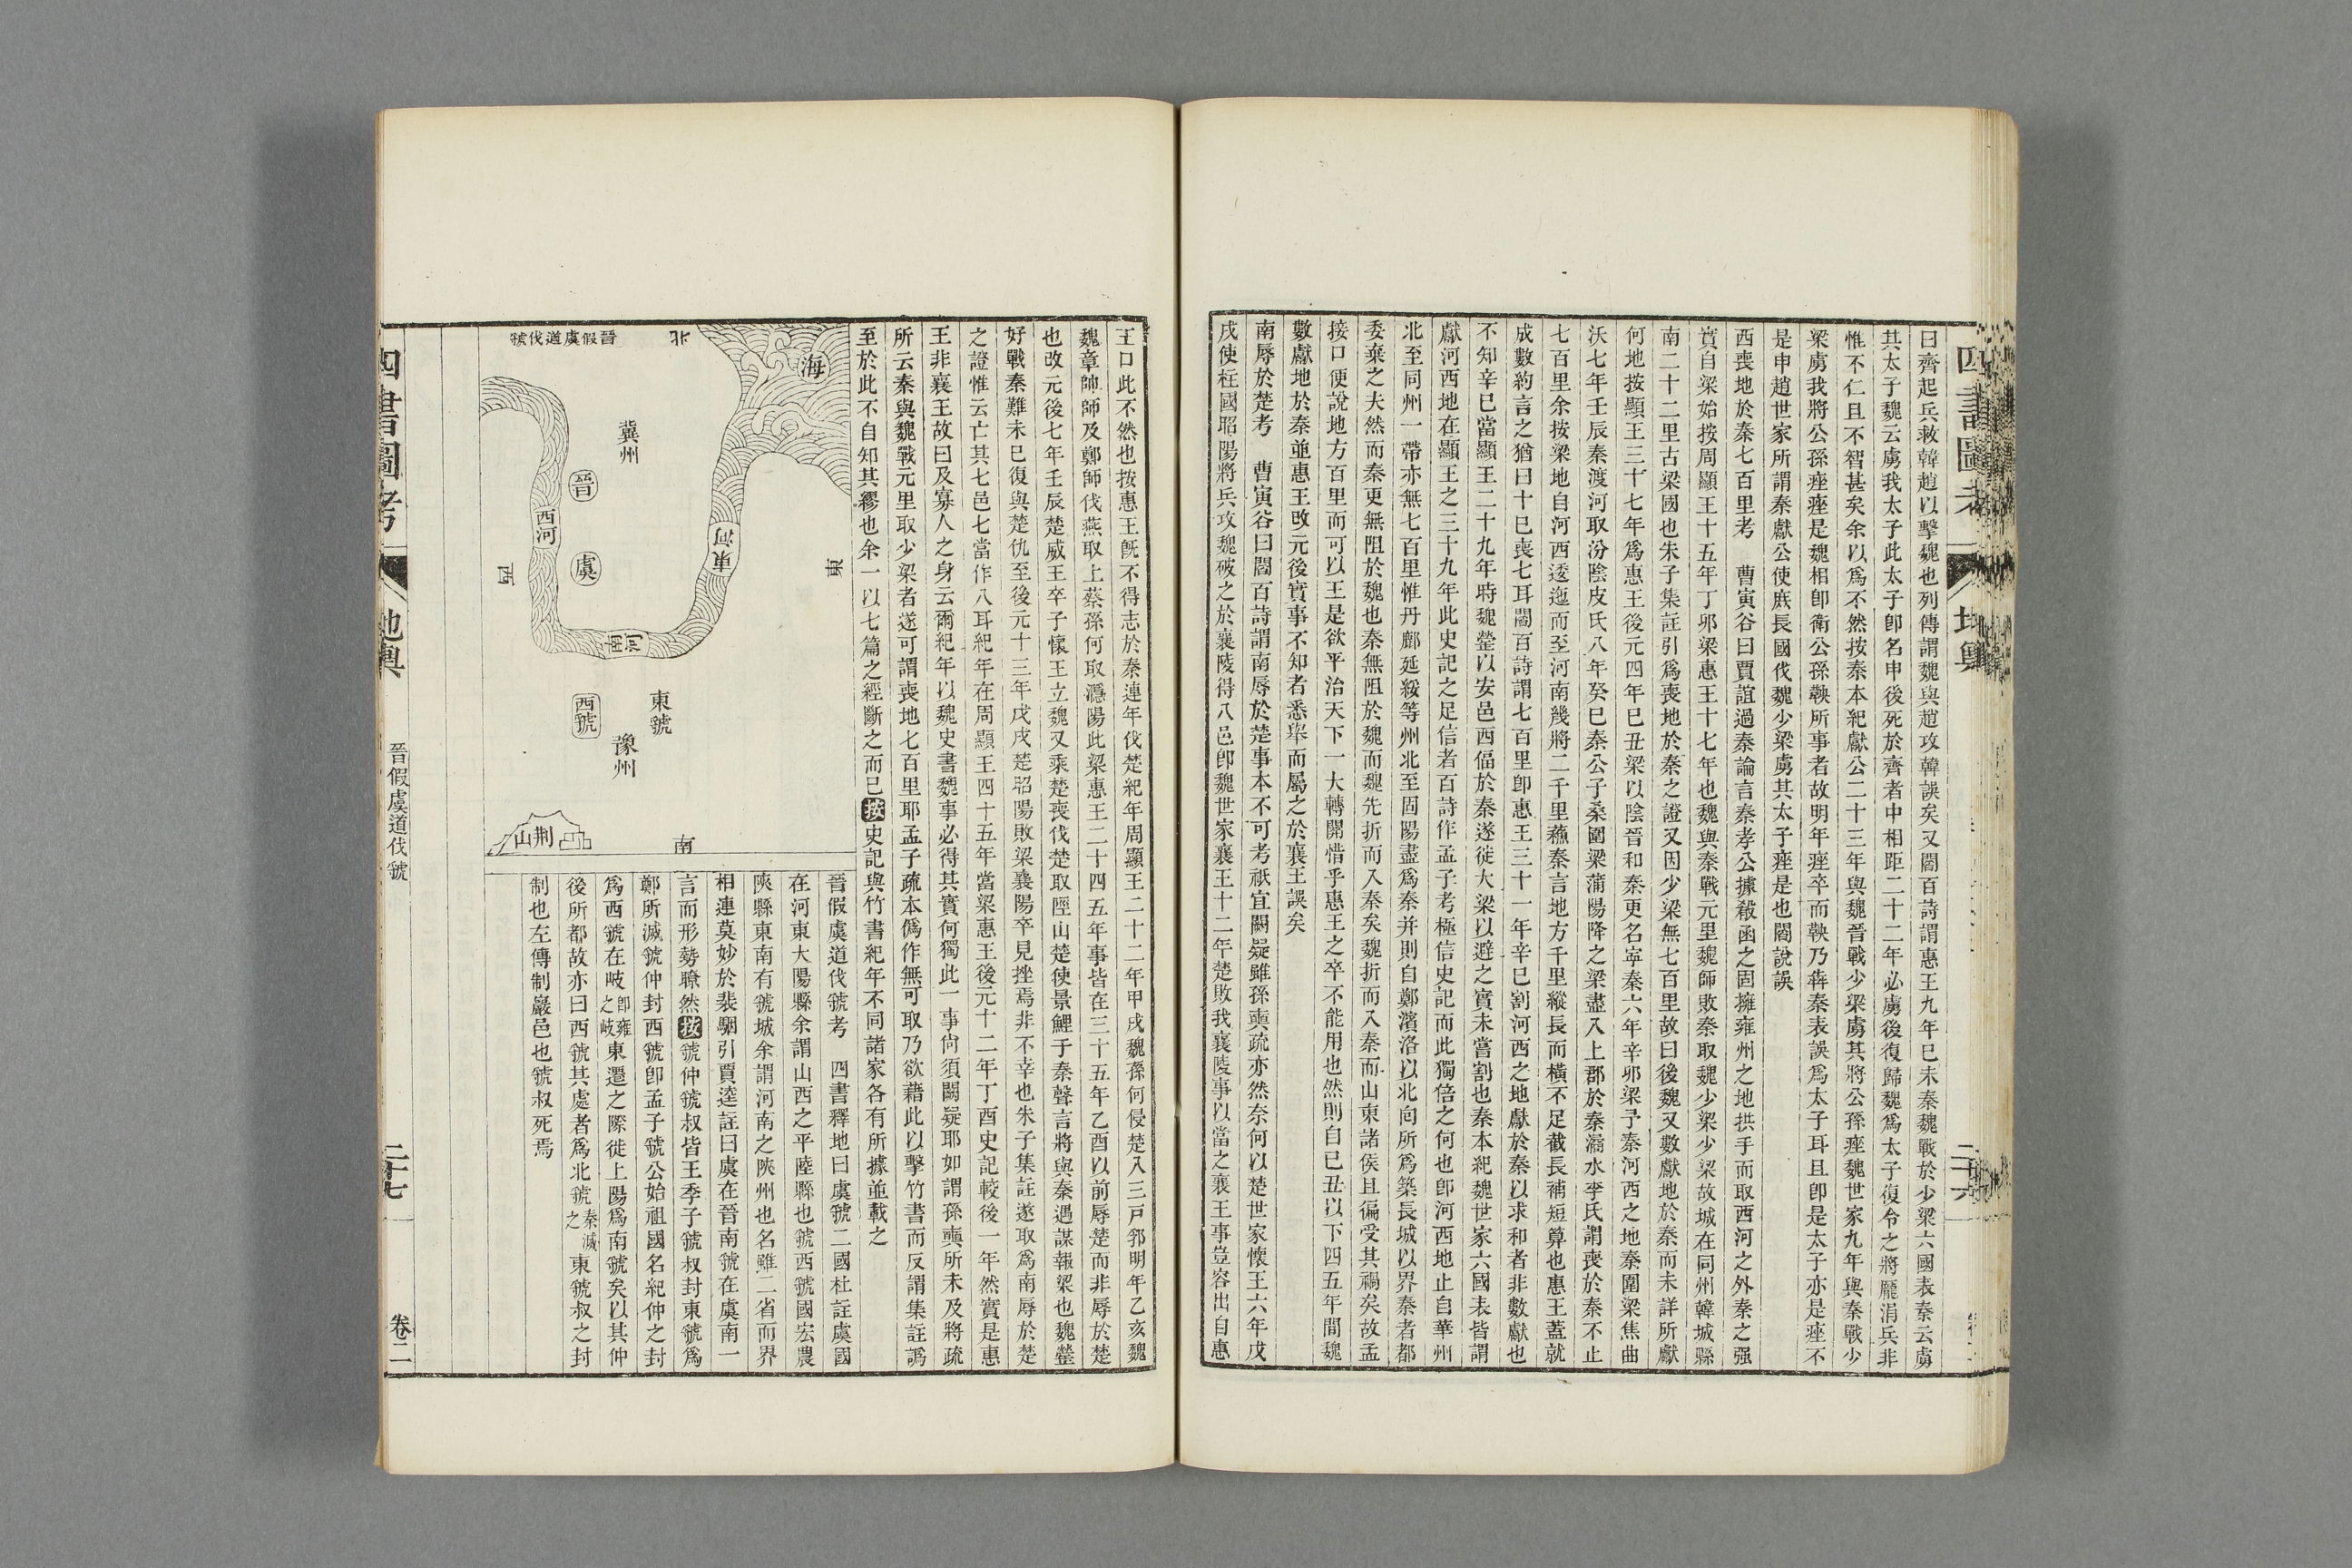 四書圖考
地輿
二十六
曰齊起兵救韓趙以擊魏也列傳謂魏與趙攻韓誤矣又閻百詩謂惠王九年巳未秦魏戰於少梁六國表秦云虜
其太子魏云虜我太子此太子卽名申後死於齊者中相距二十二年必虜後復歸魏爲太子復令之將龐涓兵非
惟不仁且不智甚矣余以爲不然按秦本紀獻公二十三年與魏晉戰少梁虜其將公孫痤魏世家九年與秦戰少
梁虜我將公孫痤痤是魏相卽衛公孫鞅所事者故明年痤卒而鞅乃犇秦表誤爲太子耳且卽是太子亦是痤不
是申趙世家所謂秦獻公使庶長國伐魏少梁虜其太子痤是也閻說誤
西喪地於秦七百里考　曹寅谷曰賈誼過秦論言秦孝公據殽函之固擁雍州之地拱手而取西河之外秦之强
實自梁始按周顯王十五年丁邜梁惠王十七年也魏與秦戰元里魏師敗秦取魏少梁少梁故城在同州韓城縣
南二十二里古梁國也朱子集註引爲喪地於秦之證又因少梁無七百里故曰後魏又數獻地於秦而未詳所獻
何地按顯王三十七年爲惠王後元四年巳丑梁以陰晉和秦更名寧秦六年辛邜梁予秦河西之地秦圍梁焦曲
沃七年壬辰秦渡河取汾陰皮氏八年癸巳秦公子桑圍梁蒲陽降之梁盡入上郡於秦漏水李氏謂喪於秦不止
七百里余按梁地自河西逶迤而至河南幾將二千里蘇秦言地方千里縱長而橫不足截長補短算也惠王蓋就
成數約言之猶曰十巳喪七耳閻百詩謂七百里卽惠王三十一年辛巳割河西之地獻於秦以求和者非數獻也
不知辛巳當顯王二十九年時魏罃以安邑西偪於秦遂徙大梁以避之實未嘗割也秦本紀魏世家六國表皆謂
獻河西地在顯王之三十九年此史記之足信者百詩作孟子考極信史記而此獨倍之何也卽河西地止自華州
北至同州一帶亦無七百里惟丹鄜延綏等州北至固陽盡爲秦并則自鄭濱洛以北向所爲築長城以界秦者都
委棄之夫然而秦更無阻於魏也秦無阻於魏而魏先折而入秦矣魏折而入秦而山東諸侯且徧受其禍矣故孟
接口便說地方百里而可以王是欲平治天下一大轉關惜乎惠王之卒不能用也然則自巳丑以下四五年間魏
數獻地於秦並惠王改元後實事不知者悉舉而屬之於襄王誤矣
南辱於楚考　曹寅谷曰閻百詩謂南辱於楚事本不可考祇宜闕疑雖孫奭疏亦然奈何以楚世家懷王六年戊
戌使柱國昭陽將兵攻魏破之於襄陵得八邑卽魏世家襄王十二年楚敗我襄陵事以當之襄王事豈容出自惠
王口此不然也按惠王旣不得志於秦連年伐楚紀年周顯王二十二年甲戌魏孫何侵楚入三戸郛明年乙亥魏
魏章帥師及鄭師伐燕取上蔡孫何取㶏陽此梁惠王二十四五年事皆在三十五年乙酉以前辱楚而非辱於楚
也改元後七年壬辰楚威王卒子懷王立魏又乘楚喪伐楚取陘山楚使景鯉于秦聲言將與秦遇謀報梁也魏罃
好戰秦難未巳復與楚仇至後元十三年戊戌楚昭陽敗梁襄陽卒見挫焉非不幸也朱子集註遂取爲南辱於楚
之證惟云亡其七邑七當作八耳紀年在周顯王四十五年當梁惠王後元十二年丁酉史記較後一年然實是惠
王非襄王故曰及寡人之身云爾紀年以魏史書魏事必得其實何獨此一事尙須闕疑耶如謂孫奭所未及將疏
所云秦與魏戰元里取少梁者遂可謂喪地七百里耶孟子疏本僞作無可取乃欲藉此以擊竹書而反謂集註譌
至於此不自知其繆也余一以七篇之經斷之而已按史記與竹書紀年不同諸家各有所據並載之
晉假虞道伐虢
北
海
冀州
晉
西河
虞
東河
東
西
南河
東虢
西虢
豫州
荆山
南
晉假虞道伐虢考　四書釋地曰虞虢二國杜註虞國
在河東大陽縣余謂山西之平陸縣也虢西虢國宏農
陝縣東南有虢城余謂河南之陝州也名雖二省而界
相連莫妙於裴駰引賈逵註曰虞在晉南虢在虞南一
言而形勢瞭然按虢仲虢叔皆王季子虢叔封東虢爲
鄭所滅虢仲封西虢卽孟子虢公始祖國名紀仲之封
爲西虢在岐卽雍之岐東遷之際徙上陽爲南虢矣以其仲
後所都故亦曰西虢其處者爲北虢秦滅之東虢叔之封
制也左傳制巖邑也虢叔死焉
四書圖考
地輿
晉假虞道伐虢
二十七
卷二